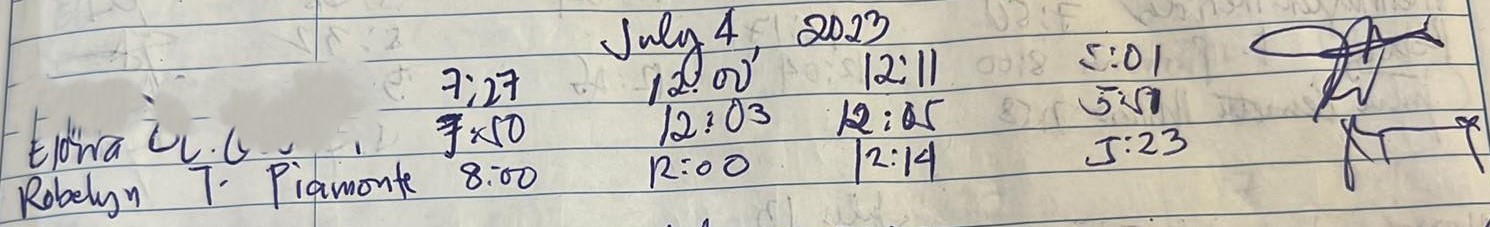 July 4, 2023
7:27 12:00 12:11 5:01
7:50 12:03 12:05 5:51
Robelyn T. Piamonte 8:00 12:00 12:14 5:23